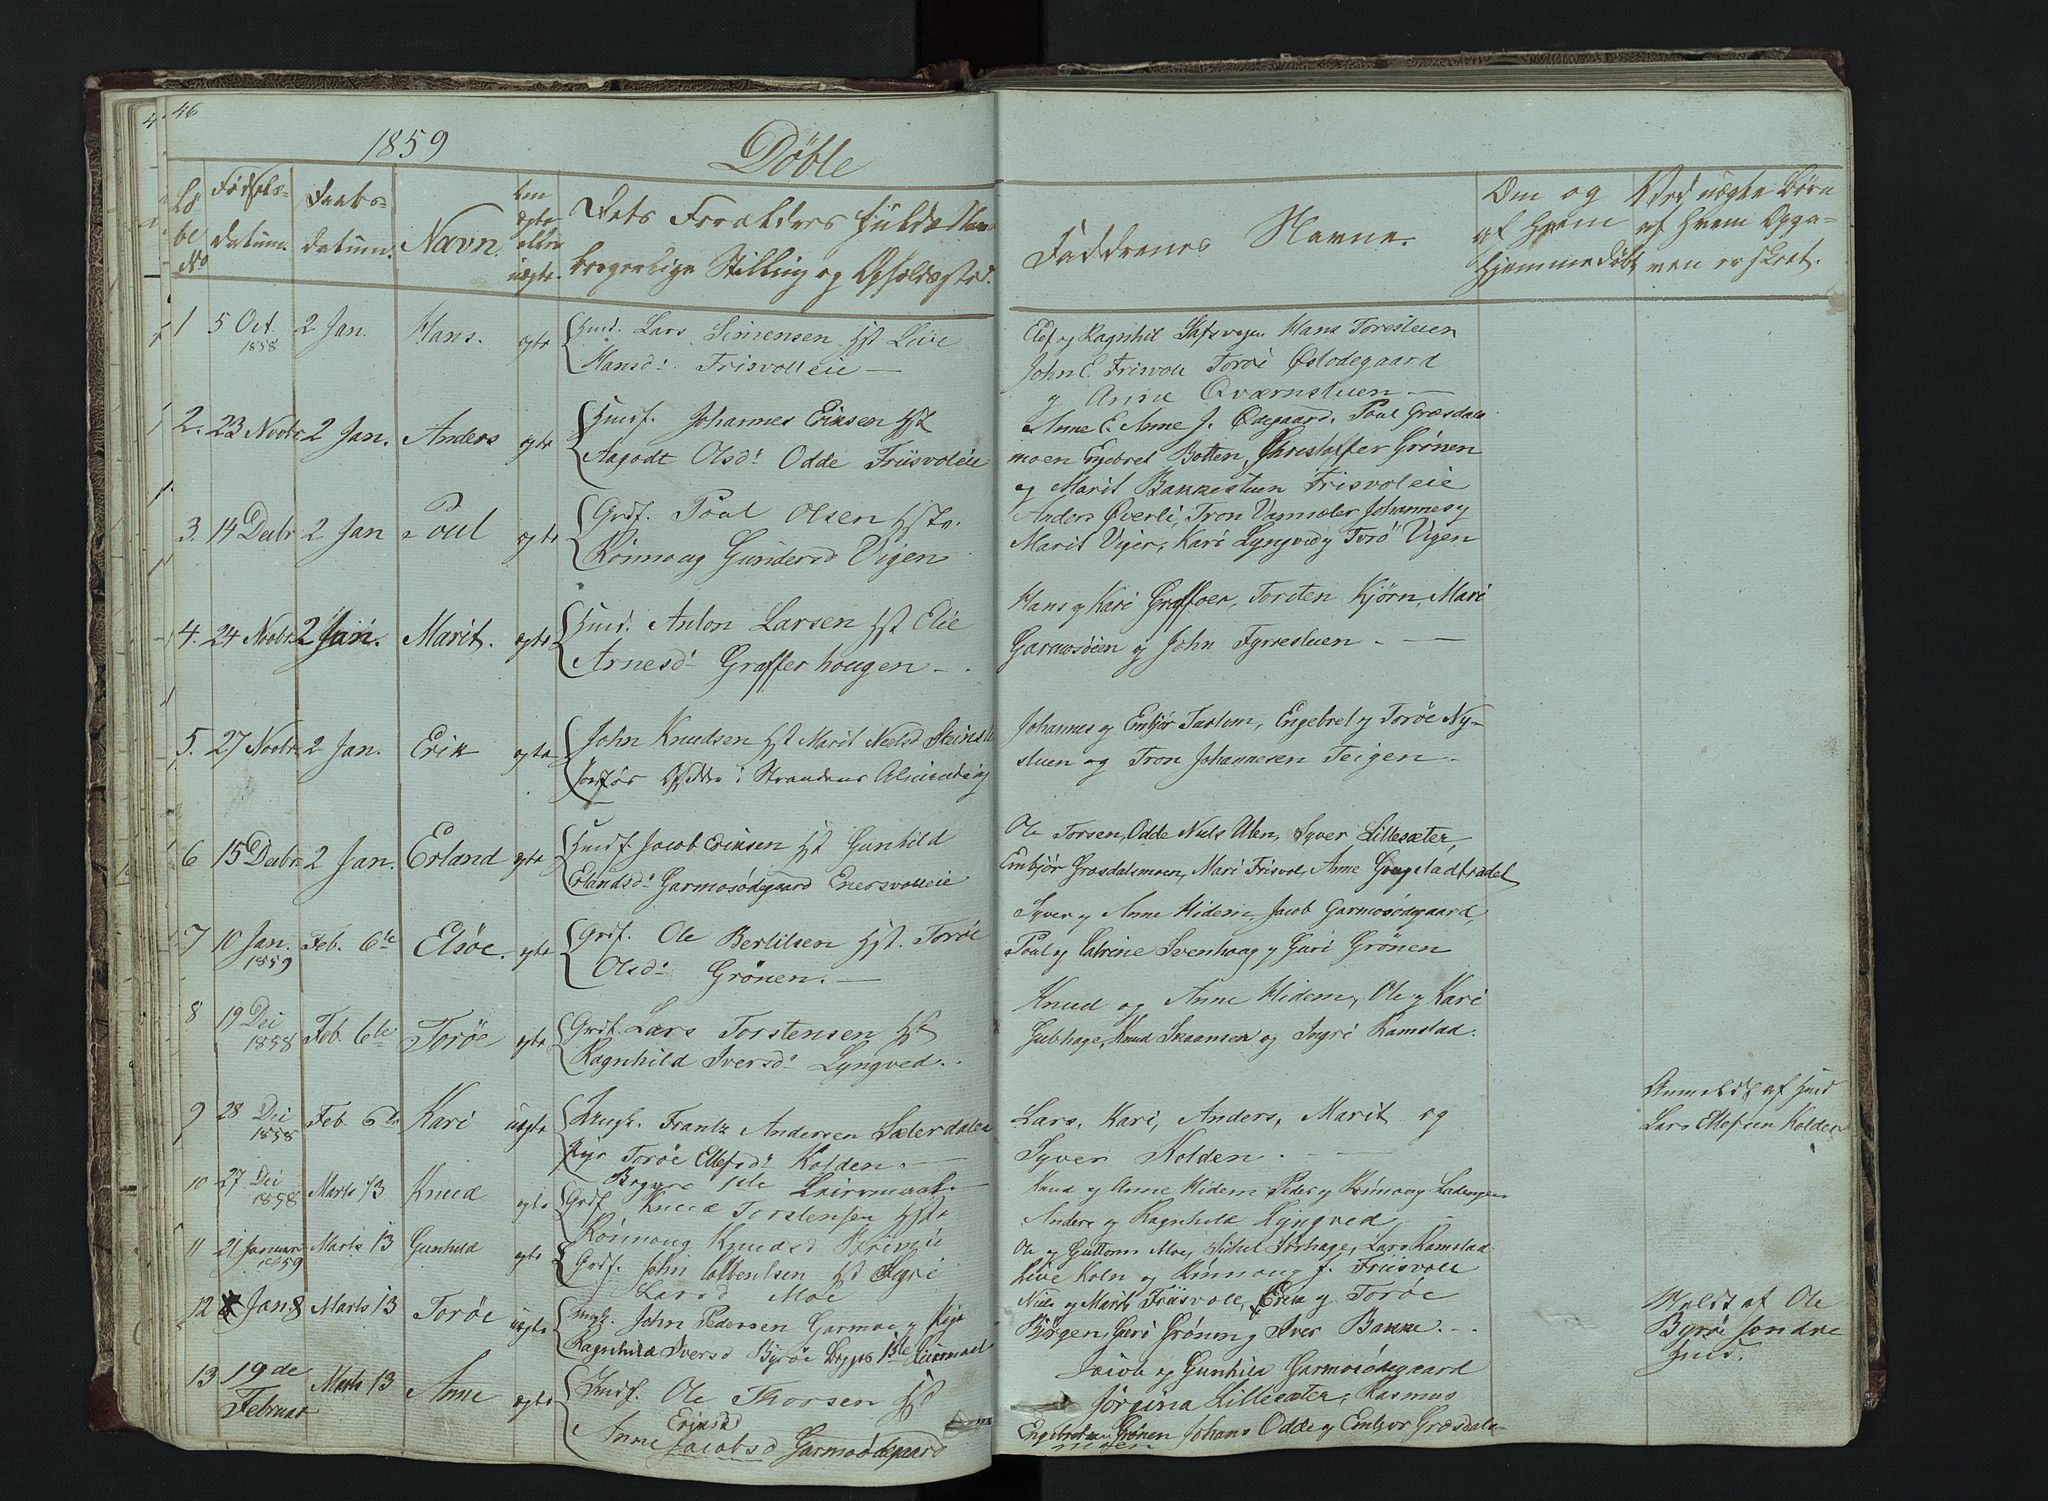 46
1859
Døbte
Lø be No
Fødsels- datum.
Daabs- datum.
Navn.
Om ægte eller uægte
Dets Forældres fulde Navn
borgerlige Stilling og Opholdssted.
Faddernes Navne.
Om og af hvem hjemmedøbt
Ved uægte Børn af hvem Opga- ven er skeet.
1 5 Oct. 1858 2 Jan. Hans. egte Huusf. Lars Simensen Hst Live
Hansd: Frisvolleie —
Elef og Ragnhil Hans Toresluen
John E. Frisvold Torøe Ødegaard
og Anne Qværnstuen —
2. 23 Novbr 2 Jan. Anders egte Huusf. Johannes Eriksen Hst
Aagodt Olsd: Odde Friisvoleie
Anne E. Anne J. Ødegaard, Poul Græsdals
moen Engebret Botten, Christoffer Grønen
og Marit Bakkestuen Frisvoleie
3. 14 Decbr 2 Jan Poul egte Grdf. Poul Olsen Hstr.
Rønnoug Gundersd Vigen
Anders Øverli, Tron Vamsæter Johannes og
Marit Viger, Kari Lyngved og Torø Vigen
4. 24 Novbr 2 Jan. Marit. egte Huusf. Anton Larsen Hst Elie
Arnesd: Grafferhougen —
Hans og Kari Graffer, Torsten Kjørn, Mari
Garmosøien og John Fyrrestuen. —
5. 27 Novbr 2 Jan. Erik egte John Knudsen Hst Marit Neelsd Steinst
i Strandens Alminding
Johannes og Embjør Tastem, Engebret og Torøe Ny-
stuen og Tron Johannesen Teigen.
6 15 Decbr 2 Jan. Erland egte Huusf Jacob Eriksen Hst Gunhild
Erlandsd: Garmosødegaard Enersvolleie
Ole Torsen, Odde Niels Ulen, Syver Lillesæter,
Embjør Græsdalsmoen, Mari Frisvol, Anne Gougstadtrædet
7 10 Jan. 1859 Feb. 6te Elsøe. egte Grdf. Ole Bertilsen Hst. Torøe
Olsd: Grønen. —
Syver og Anne Hidem, Jacob Garmosødegaard,
Poul og Catrine Svenhaug og Guri Grønen
8 19 Dec 1858 Feb. 6te Torøe egte Grdf. Lars Torstensen Hst
Ragnhild Iversd: Lyngved.
Knud og Anne Hidem, Ole og Kari
Gubhage, Knud Skaansen og Ingri Ramstad.
9 28 Dec 1858 Feb. 6te Kari uegte Ungk. Frantz Andersen Sæterdalen
Pige Torøe Ellefsd: Kolden. —
Begges 1ste Leiermaal —
Lars, Kari, Anders, Marit og
Syver Holden.
Anmeldt af Huusf
Lars Ellefsen Kolden
10 27 Dec 1858 Marts 13 Knud egte Grdf Knud Torstensen Hst
Rønnoug Knudsd
Knud og Anne Hidem, Peder og Rønnoug
Anders og Ragnhild Lyngved
11 21 Januar 1859 Marts 13 Gunhild egte Grdf. John Hst Ingri
Larsd Moe
Ole og Guttorm Moe, Sørhage, Lars Ramstad
Live Koln og Rønnoug J. Friisvold
12 Jan. 8 Marts 13 Torøe uegte Ungk. John Pedersen Garmoe og Pige
Ragnhild Iversd Byrøe Begges 1ste Leiermaal
Niels og Marit Friisvold, Erik og Torøe
Bjørgen, Guri Grøning Iver Bakke.
Meldt af Ole
Byrøe søndre
Huusf.
13 19de Februar Marts 13 Anne egte Huusf. Ole Thorsen Hst
Eriksd
Anne Jacobsd Garmosødegaard
Jacob og Gunhild Garmosødegaard
Jørgina Lillesæter, Rasmus
Engebretsen Grønen Johans Odde og Embjor Græsdals-
moen